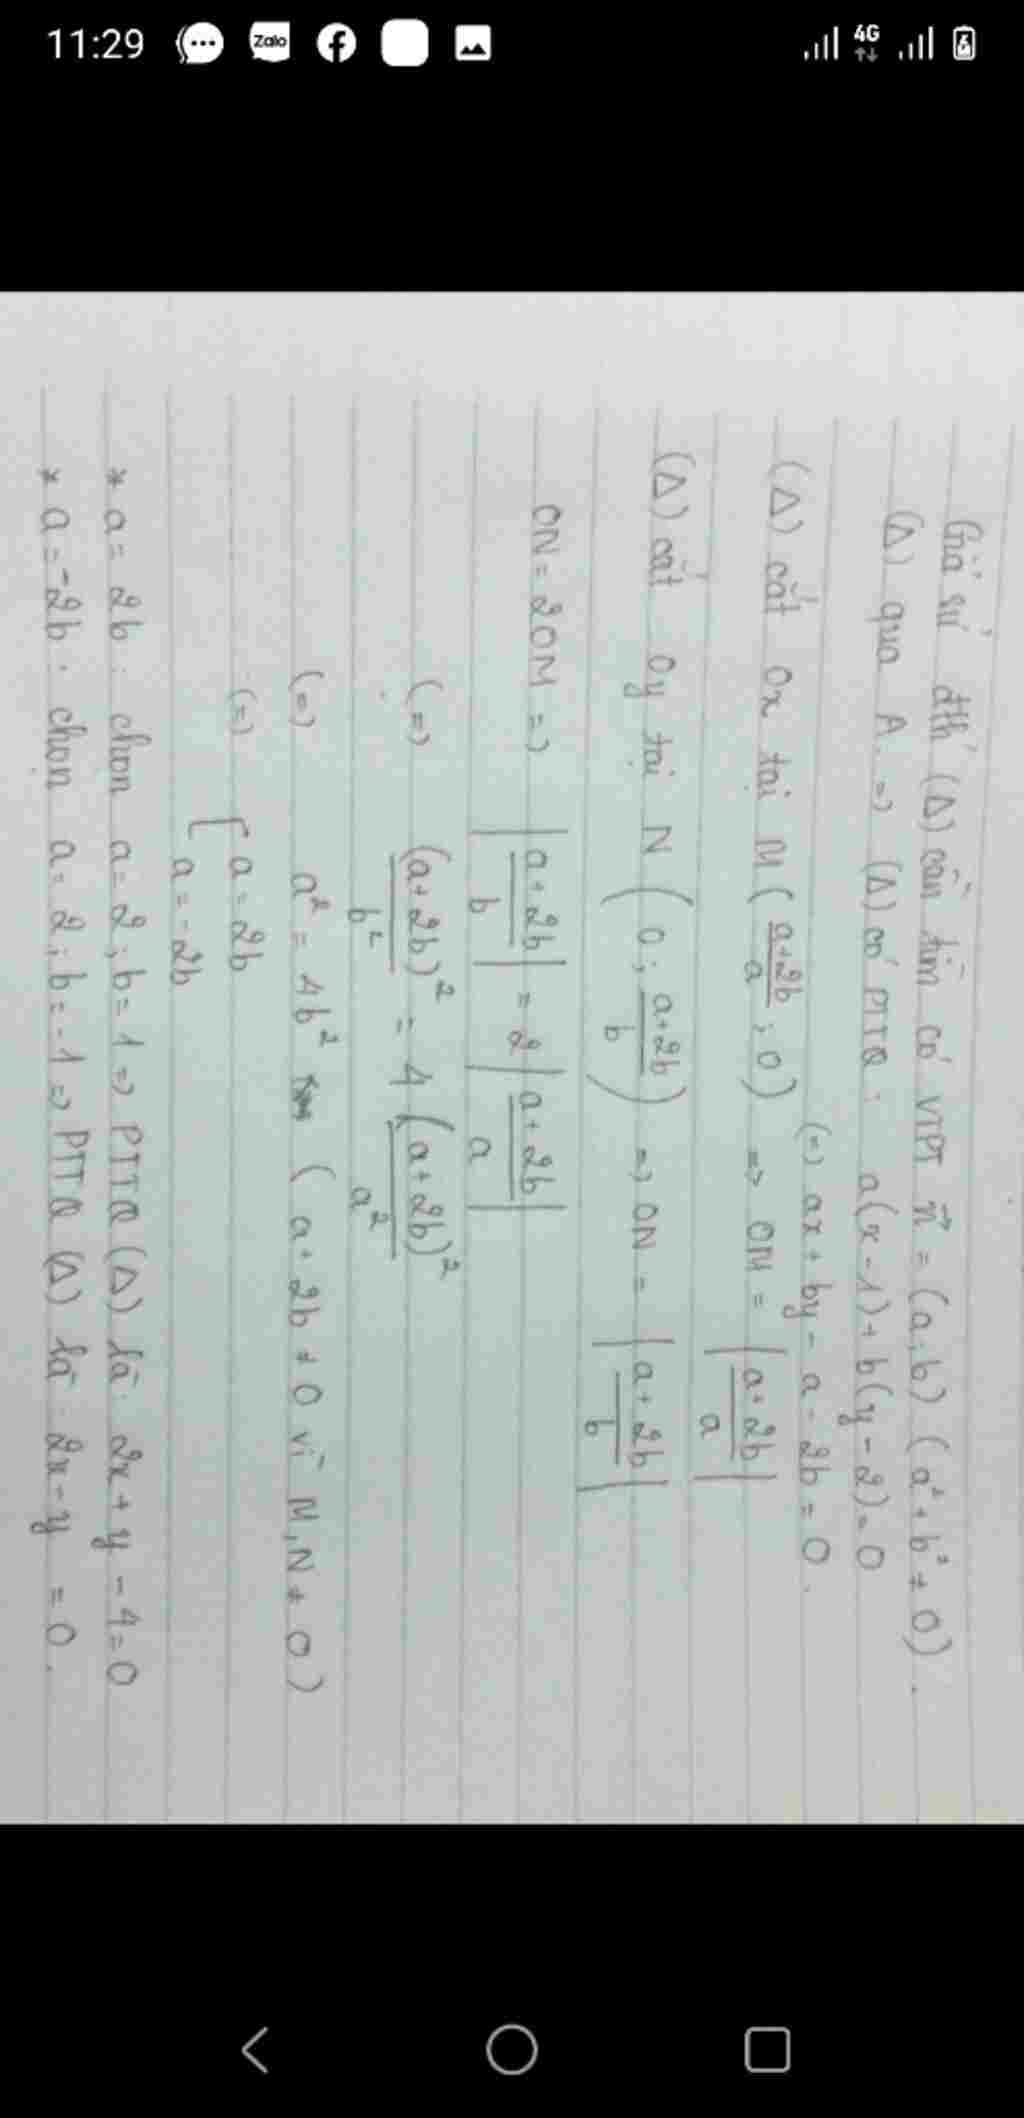 11:29
Zalo
4G
Giả sử đth (Δ) cần tìm có VTPT n⃗ = (a;b) (a² + b² ≠ 0).
(Δ) qua A => (Δ) có PTTQ: a(x-1) + b(y-2) = 0
(=) ax + by - a - 2b = 0.
(Δ) cắt Ox tại M ( (a+2b)/a ; 0) => OM = | (a+2b)/a |
(Δ) cắt Oy tại N ( 0; (a+2b)/b ) => ON = | (a+2b)/b |
ON = 2OM => | (a+2b)/b | = 2 | (a+2b)/a |
(=) (a+2b)²/b² = 4 (a+2b)²/a²
(=) a² = 4b² ( a+2b ≠ 0 vì M,N ≠ O)
(=) [ a = 2b
a = -2b
* a = 2b. chọn a = 2; b = 1 => PTTQ (Δ) là: 2x + y - 4 = 0
* a = -2b. chọn a = 2; b = -1 => PTTQ (Δ) là: 2x - y = 0.